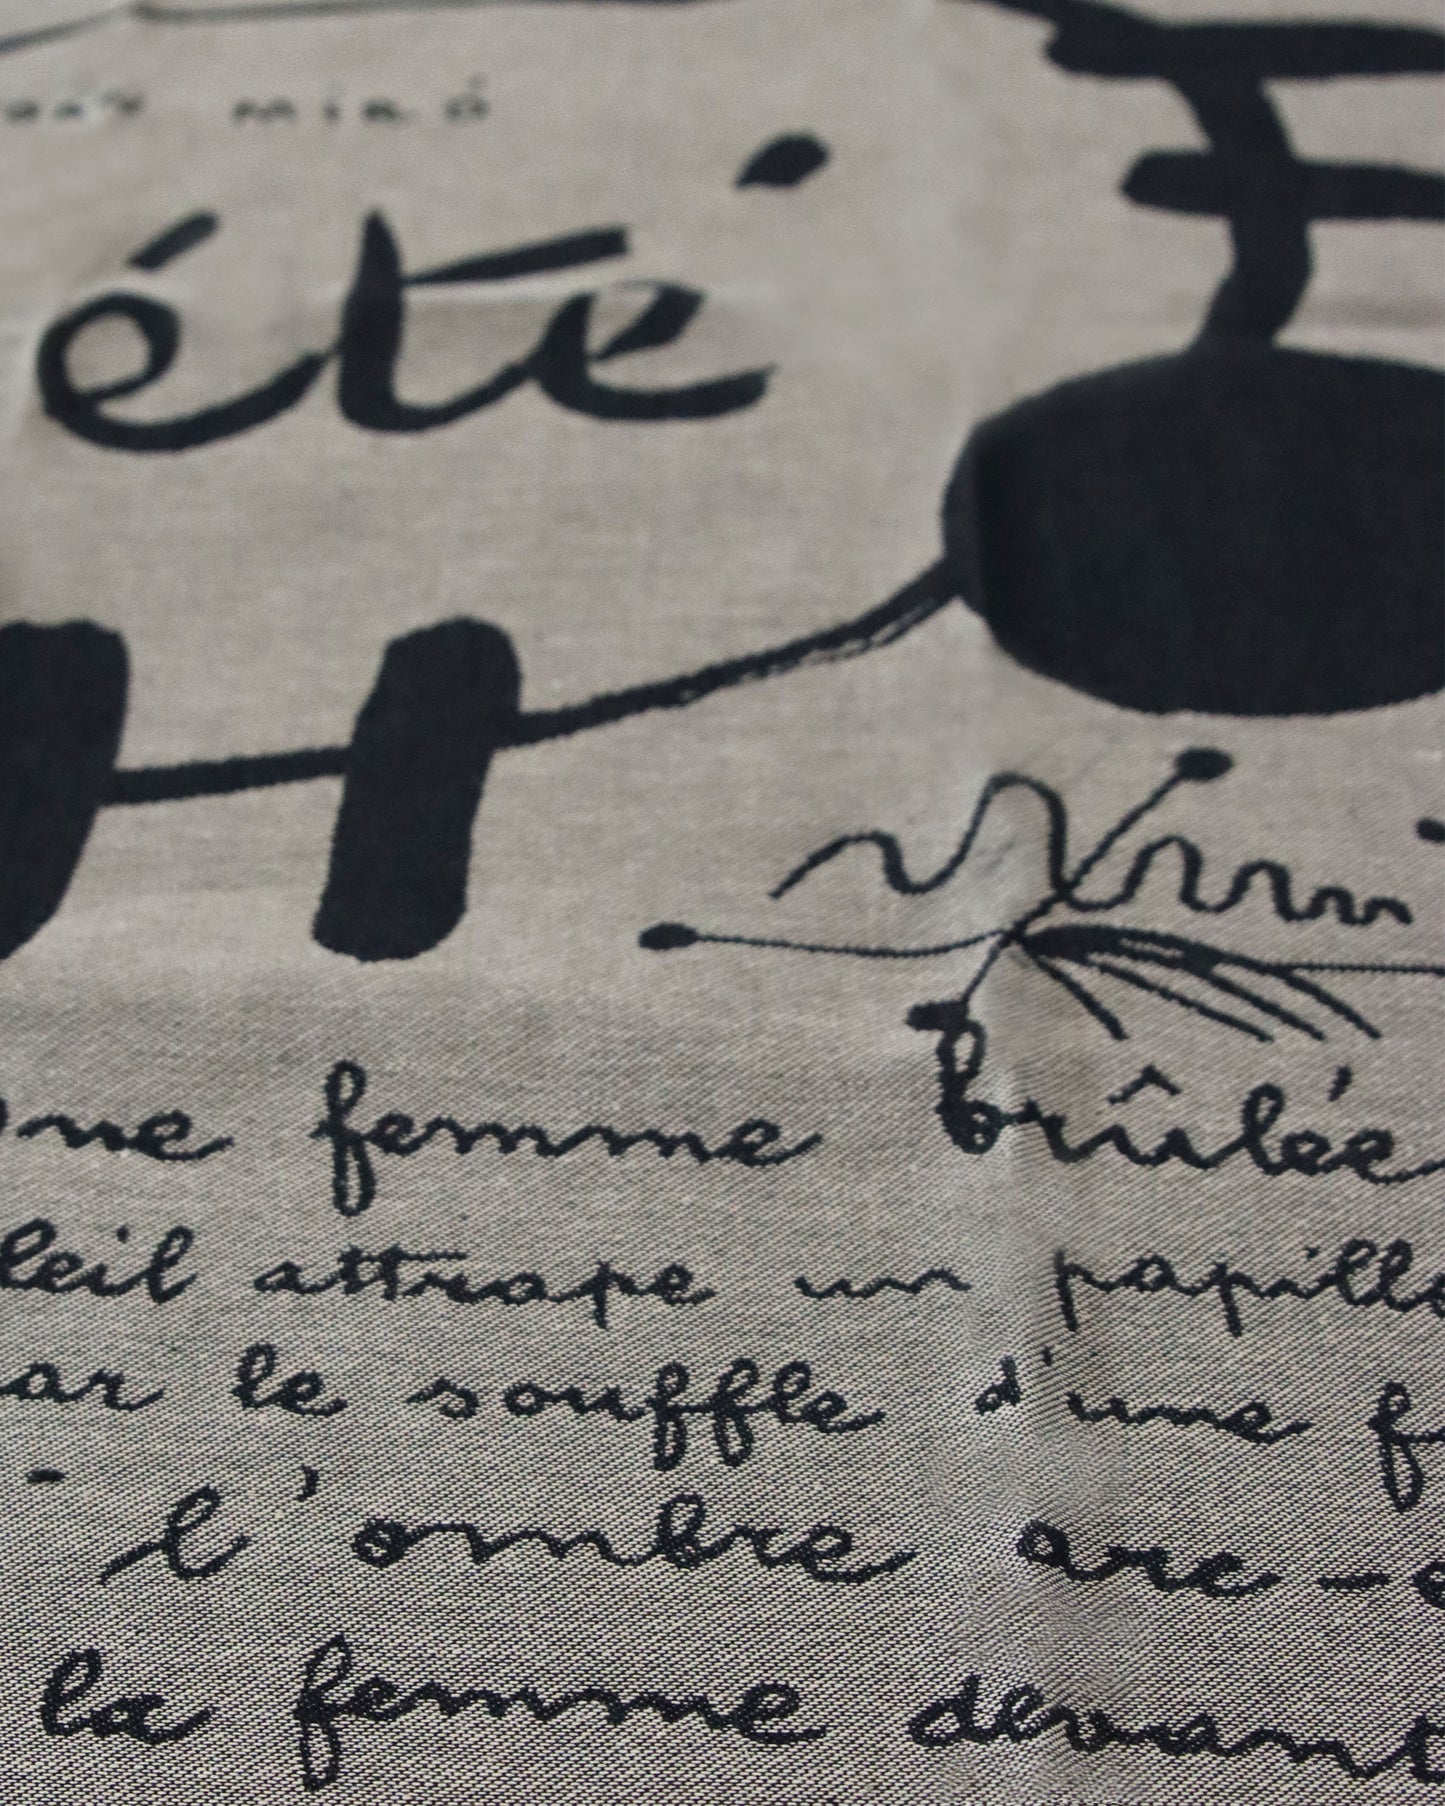 miró
été
une femme brûlée
leil attrape un papillo
ar le souffle d'une f
l'ombre arc-
la femme devant